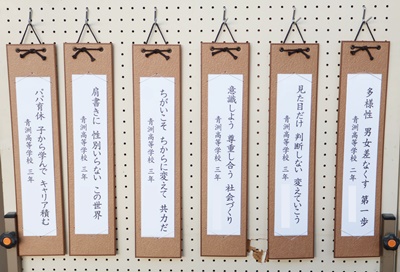 多様性 男女差なくす 第一歩
青洲高等学校 二年
見た目だけ 判断しない 変えていこう
青洲高等学校 三年
意識しよう 尊重し合う 社会づくり
青洲高等学校 三年
ちがいこそ ちからに変えて 共力だ
青洲高等学校 三年
肩書きに 性別いらない この世界
青洲高等学校 三年
パパ育休 子から学んで キャリア積む
青洲高等学校 三年